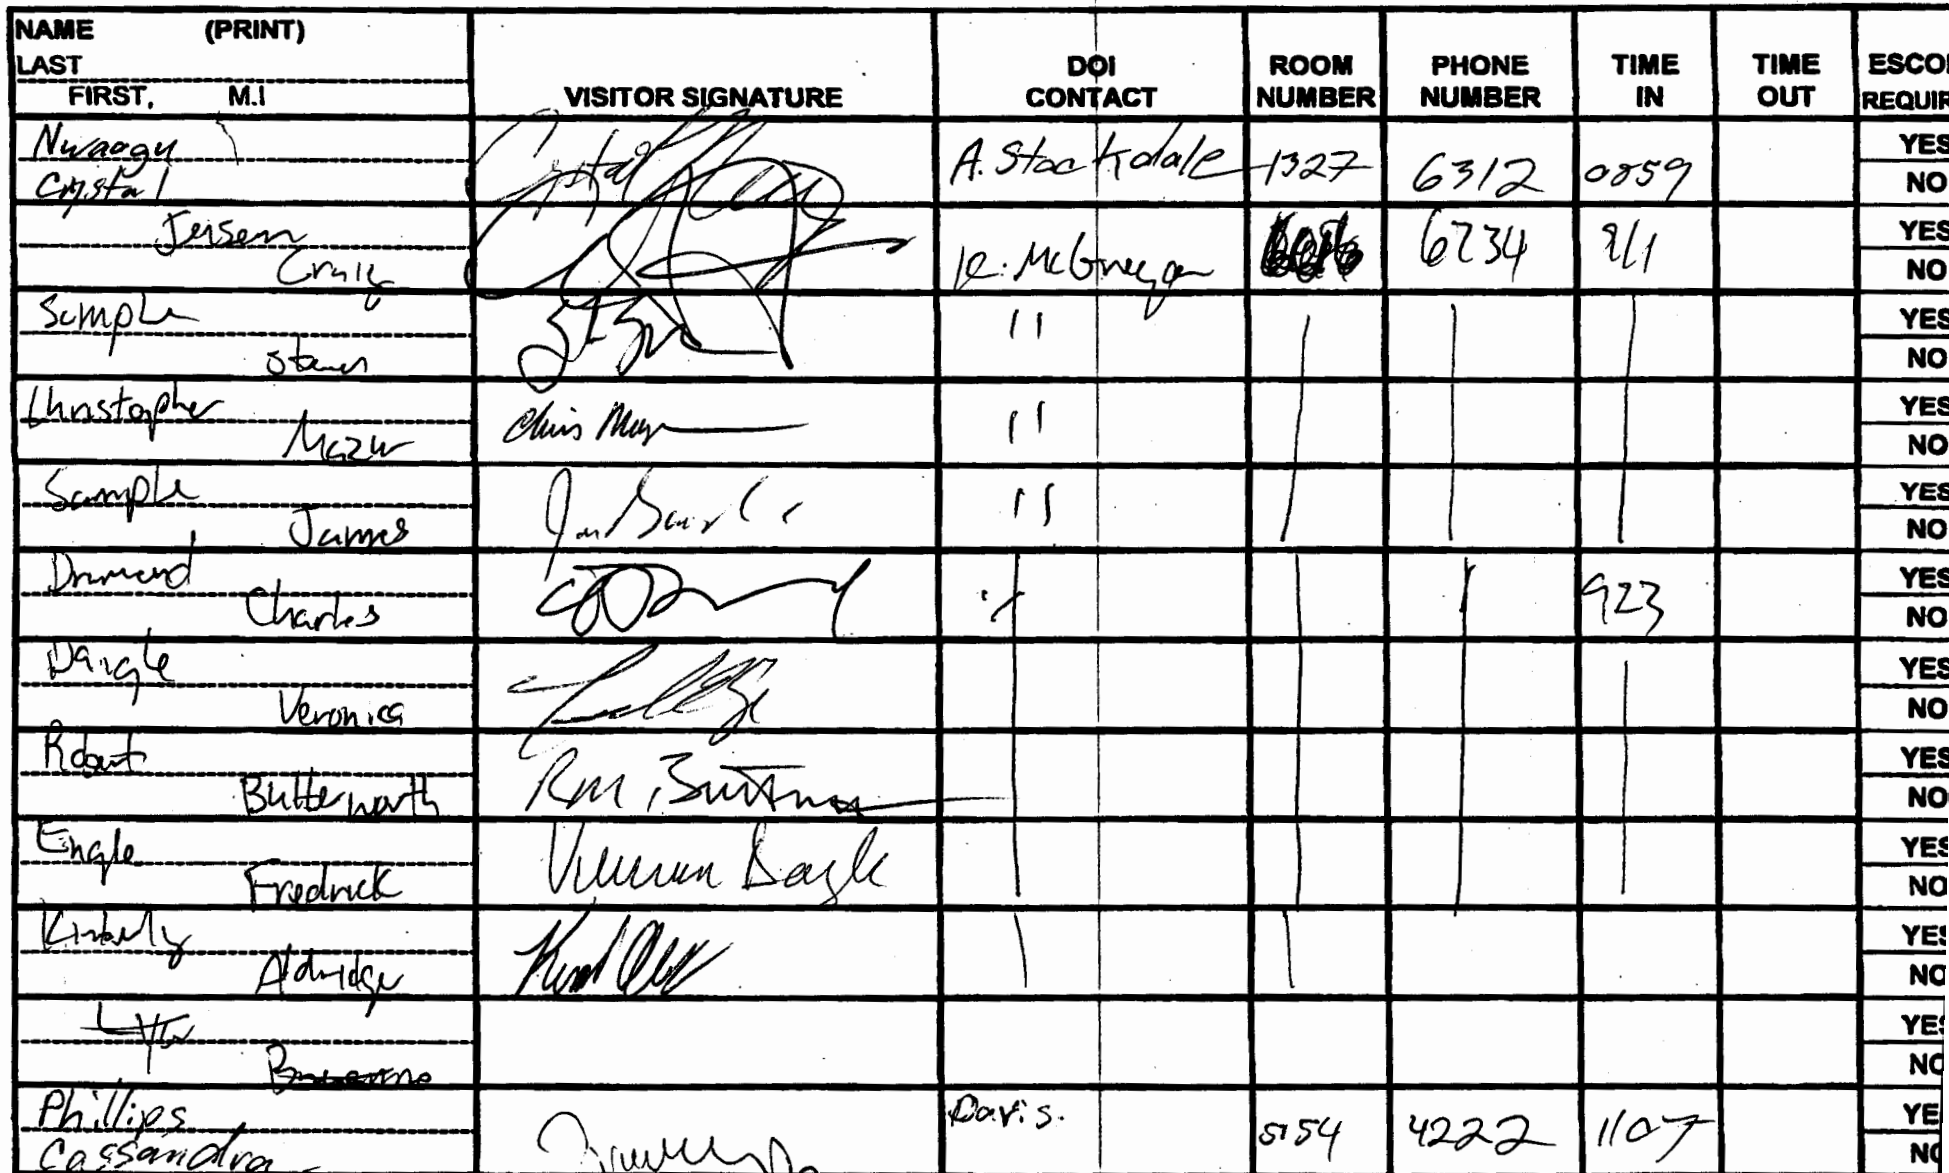 NAME (PRINT)
LAST
FIRST, M.I
VISITOR SIGNATURE
DOI
CONTACT
ROOM
NUMBER
PHONE
NUMBER
TIME
IN
TIME
OUT
ESCO
REQUIR
Nwaogu
Crystal
Crystal
A. Stockdale
1327
6312
0859
YES
NO
Jensen
Craig
K. McGregor
6234
911
YES
NO
Sample
Steven
11
YES
NO
Christopher
Mazur
Chris Mazur
11
YES
NO
Sample
James
11
YES
NO
Drumond
Charles
923
YES
NO
Daigle
Veronica
YES
NO
Robert
Butterworth
RM. Butterworth
YES
NO
Engle
Fredrick
Daigle
YES
NO
Kimberly
Aldridge
YES
NO
YES
NO
Phillips
Cassandra
Davis.
5154
4222
1107
YE
NO